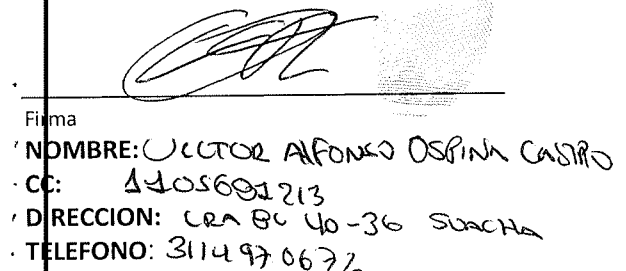 Firma
NOMBRE: VICTOR ALFONSO OSPINA CASTRO
CC: 1105691213
DIRECCION: CRA 8C 40-36 SUACHA
TELEFONO: 3114970672